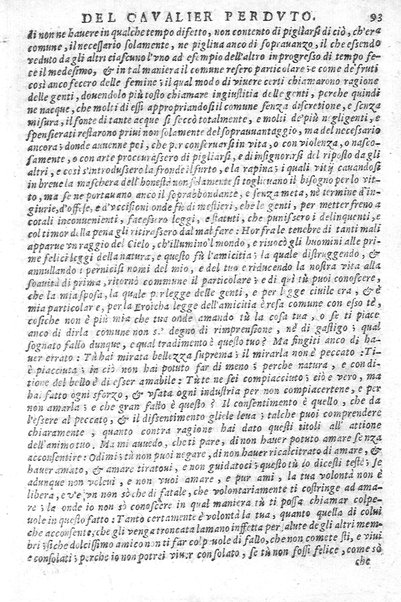 DEL CAVALIER PERDVTO. 93
di non ne hauere in qualche tempo difetto, non contento di pigliarsi di ciò, ch'era
comune, il necessario solamente, ne pigliu anco di soprauanzo, il che essendo
veduto da gli altri ciascuno l'vno ad essempio dell'altro in progresso di tempo fe-
te il medesimo, & in tal maniera il comune resero particolare: e come de' fruti
così anco fecero delle femine; il qual modo di viuere certi chiamarono ragione
delle genti, douendolo più tosto chiamare ingiustitia delle genti, perche quindi
ne nacque, che molti di essi appropriandosi il comune senza discretione, e senza
misura, il fonte di tante acque si seccò totalmente, e molti de' più negligenti, e
spensierati restarono priui non solamente del soprauantaggio, ma del necessario
ancora; donde auuenne poi, che per conseruarsi in vita, o con violenza, o nasco-
samente, o con arte procurassero di pigliarsi, e di insignorirsi del riposto da gli
altri, e così s'introdussero la fronde il furto, e la rapina; i quali vitij causandosi
in breue la maschera dell'honestà non solamente si toglieuano il bisogno per lo vit-
to, ma se ne portauano anco il soprabondante, e senza meta, nè termine d'in-
giurie, d'offese, e d'vccisioni onde fù di mestieri, che le genti, per metter freno a
cotali inconuenienti, facessero leggi, e statuti, che punissero i delinquenti, e
col timor della pena gli ritirassero dal malfare: Hor fra le tenebre di tanti mali
apparue vn raggio del Cielo, ch'illuminò'l mondo, e riuocò gli huomini alle pri-
me felici leggi della natura, e questo fù l'amicitia; la quale distruggendo, &
annullando i perniciosi nomi del mio, e del tuo e riducendo la nostra vita alla
soauità di prima, ritornò commune il particolare; e di quì tù puoi conoscere,
che la mia sposa, la quale per legge delle genti, e per legge ciuile era, & è
mia particolare, per la Eroicha legge dell'amicitia è resa comune con esso tè,
cosiche non è più mia che tua onde amando tù la cosa tua, o se ti piace
anco di dirla comune non sè degno di riprensione, nè di gastigo; qual
sognato fallo dunque, e qual tradimento è questo tuo? Ma fingiti anco di ha-
uer errato: Tù hai mirata bellezza suprema; il mirarla non è peccato: Ti-
è piacciuta; in ciò non hai potuto far di meno; perche natura, e con-di-
tione del bello è di esser amabile: Tù te ne sei compiacciuto; ciò è vero, ma
hai fatto ogni sforzo, & vsata ogni industria per non compiacertene, e per
non amarla: e che gran fallo è questo? Il consentimento è quello, che dà
l'essere al peccato, & il dissentimento gliele leua; talche puoi comprendere
chiaramente, quanto contra ragione hai dato questi titoli all' attione
dell'animo tuo. Ma mi auuedo, che ti pare, di non hauer potuto amare senza
acconsentire: Odimi; tù non puoi negare, di non hauer ricalcitrato di amare, &
hauer amato, & amore tiratoui, e non guidatoci; questo tù lo dicesti testè: Se
adunque non velei, e non vuoi amare, e pur ami, la tua volontà non è
libera, e vn non sò che di fatale, che volontariamente ti costringe ad ama-
re: le onde io non sò conoscere in qual maniera tù ti possa chiamar colpe-
uole in questo fatto: Tanto certamente è volontà tua, quanto quella di colui
che acconsente, che gli venga troncata la mano infetta per salute de gli altri mem-
bri; sìche dolcissimo amico non ti far colpeuole di fallo, che non comete stì, e vi
e consolati; perche io non potrei viuer consolato, se tù non fossi felice, come sò
che